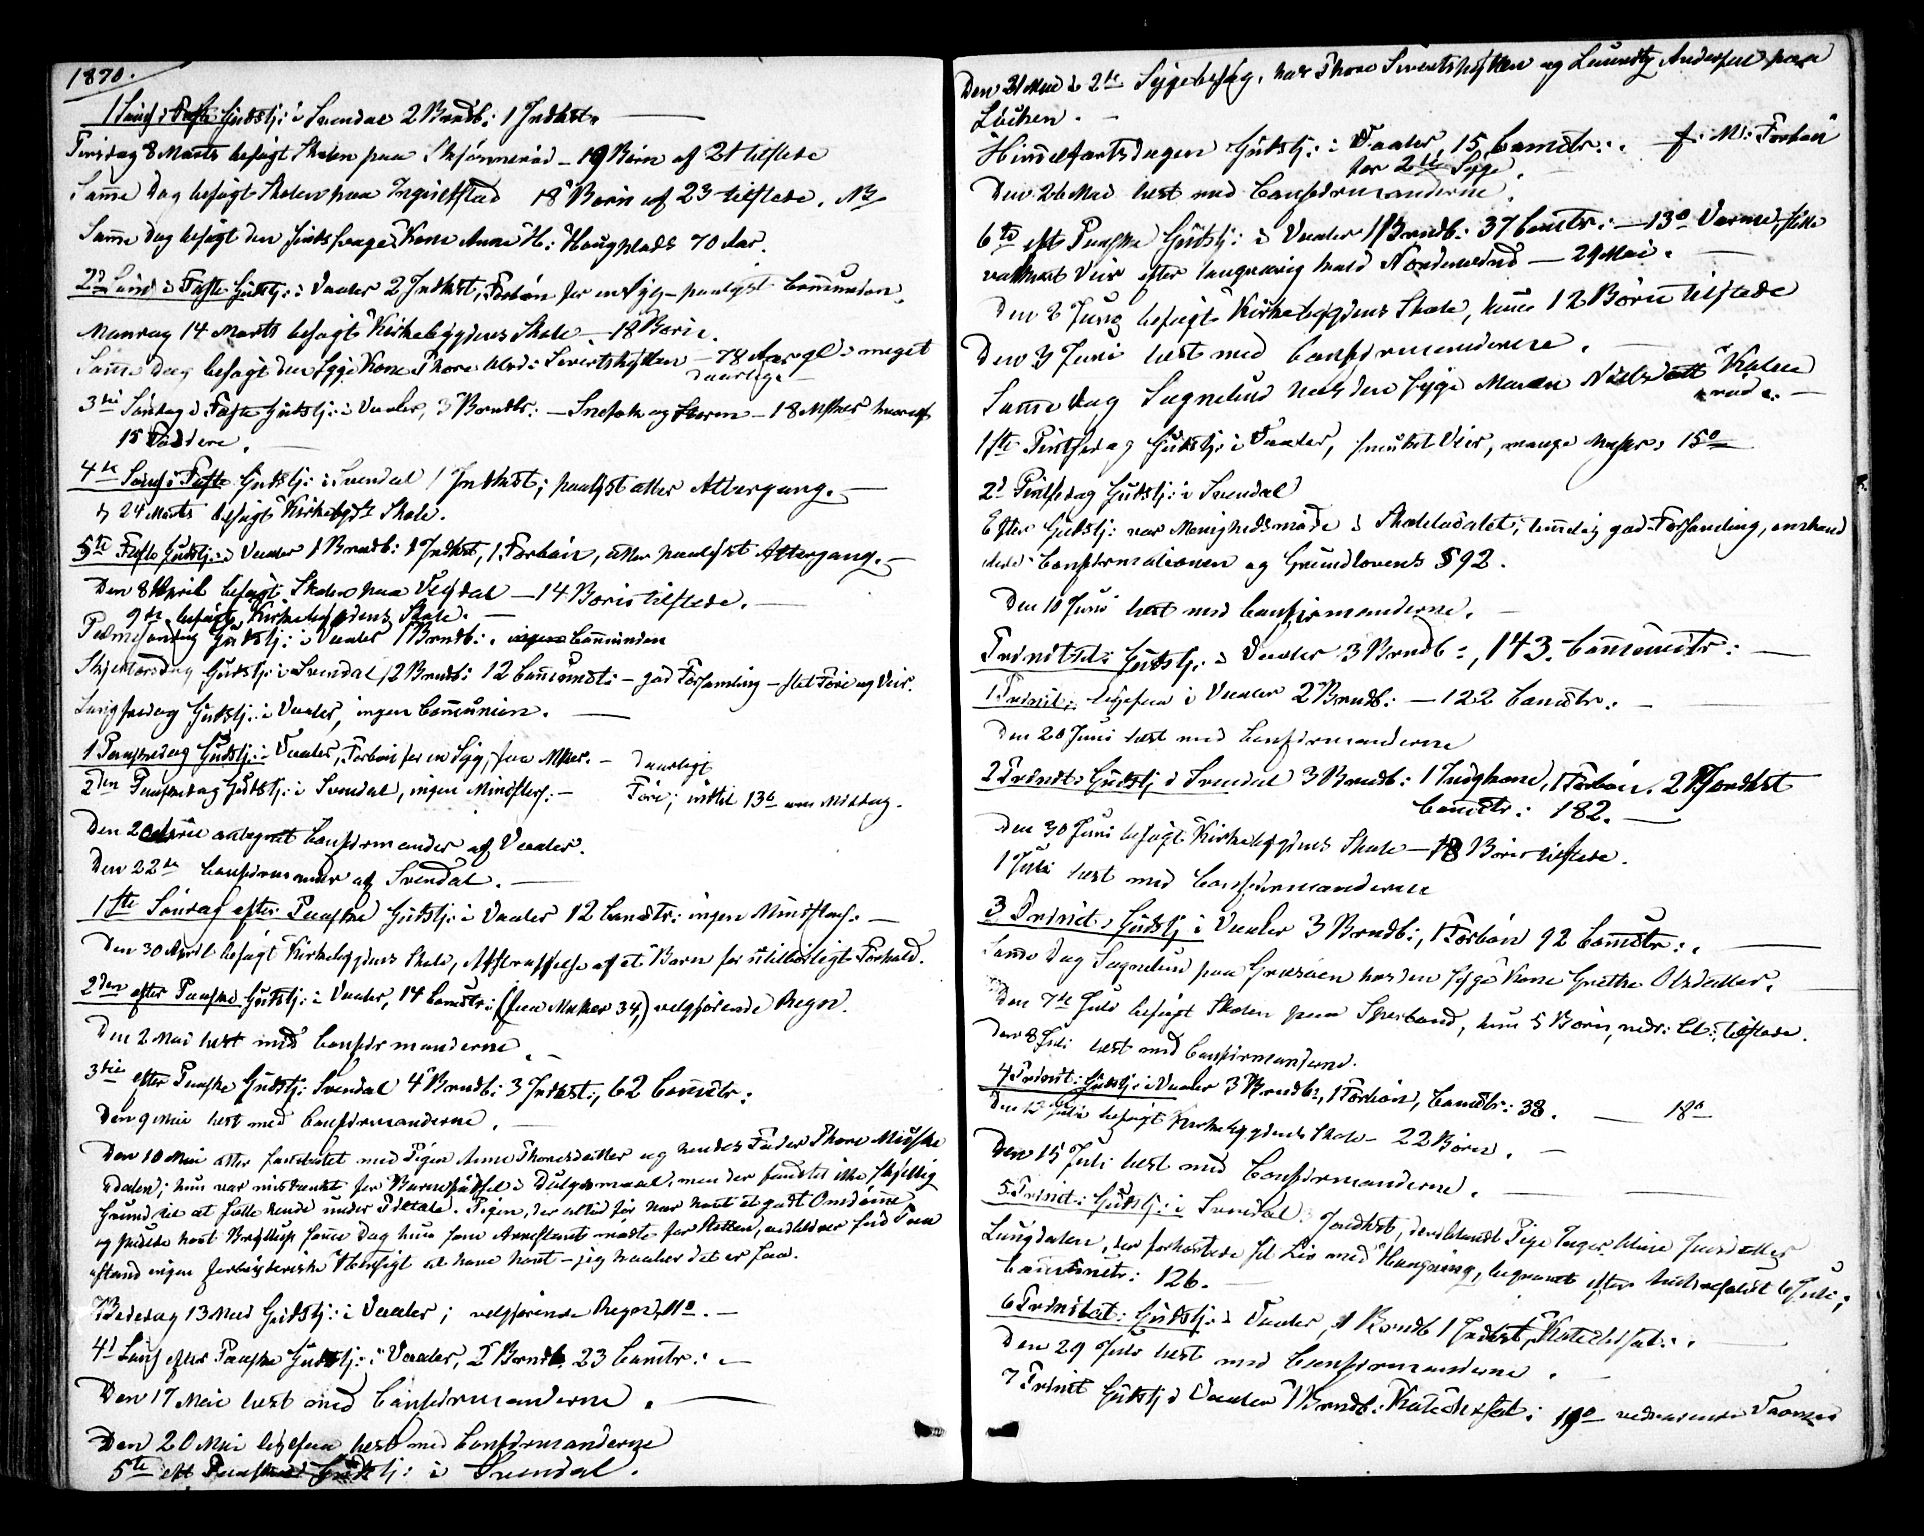 1870.
1 Sønd: i Faste Gudstj: i Svendal 2 Barnedb: 1 Indkst.
Tirsdag 8 Marts besøgt Skolen paa Skjønnerød – 19 Børn af 21 tilstede
Samme Dag besøgt Skolen paa 18 Børn af 23 tilstede. NB
Samme Dag besøgt den Kone Anne H: Haugplads 70 Aar.
2d Sønd i Faste Gudstj: i Vaaler 2 Indkst, Forbøn for en Syg – paalyst Communion.
Mandag 14 Marts besøgt Kirkebygdens Skole – 18 Børn.
Samme Dag besøgt den syge Kone Thore Sivertshytten – 78 Aar gl: meget
daarlig –
3die Søndag i Faste Gudstj: i Vaaler, 3 Barnedb: – Snefok og Storm – 18 Msker hvoraf
15 Faddere.
4de Sønd: i Faste Gudstj: i Svendal 1 Indkst; paalyst atter Altergang. –
d 24 Marts besøgt Kirkebygds Skole.
5te Faste Gudstj: i Vaaler 1 Barnedb: 1 Indkst, 1 Forbøn, atter paalyst Altergang. –
Den 8 April besøgt Skolen paa Texdal – 14 Børn tilstede. –
9de besøgt Kirkebygdens Skole. –
Palmesøndag Gudstj: i Vaaler 1 Barnedb: . ingen Communion
Skjertorsdag Gudstj: i Svendal, 2 Barnedb: 12 Communt: – god Forsamling – slet Føre og Veir.
Langfredag Gudstj: i Vaaler, ingen Communion. –
1 Paaskedag Gudstj: i Vaaler, Forbøn for en Syg, faa Msker. – daarligt
2den Paaskedag Gudstj: i Svendal, ingen Ministf: – Føre; indtil 13° om Middag.
Den 20 April antegnet Confirmander af Vaaler.
Den 22de Confirmander af Svendal. –
1ste Søndag efter Paaske Gudstj: i Vaaler 12 Comstr: ingen Ministf: –
Den 30 April besøgt Kirkebygdens Skole, Afstraffelse af et Barn for utilbørligt Forhold.
2den efter Paaske Gudstj: i Vaaler, 14 Comstr: (faa Msker 34,) velgjørende Regn.
Den 2 Mai læst med Confirmanderne. –
3die efter Paaske Gudstj: Svendal 4 Barnedb: 3 Indkst:, 62 Comstr:
Den 9 Mai læst med Confirmanderne. –
Den 10 Mai atter med Pigen Anne Thoresdatter og hendes Fader Thore
dalen; hun var mistænkt for Barnefødsel i Dølgsmaal, men der fandtes ikke skjellig
Grund til at fælle hende under Tiltale. Pigen, der altid før har havt et godt Omdømme
og skulde havt Bryllup samme Dag hun som Arrestant mødte for Retten,
ingen forbryderisk Hensigt at have havt – jeg haaber det er saa.
Bededag 13 Mai Gudstj: i Vaaler; velgjørende Regn, 11°. –
4d Sønd efter Paaske Gudstj: i Vaaler, 2 Barnedb. 23 Comstr: –
Den 17 Mai læst med Confirmanderne. –
Den 20 Mai ligesaa læst med Confirmanderne
5te eft Paaske Gudstj: i Svendal.
Den 21 Mai i 2de Sygebesøg, hos Thore Sivertshytten og Lauritz Andersen paa
Løken. –
Himmelfartsdagen Gudstj: i Vaaler, 15 Comstr: . M: Forbøn
for 2de Syge.
Den 26 Mai læst med Confirmanderne.
6te eft Paaske Gudstj: i Vaaler 1 Barnedb: 37 Comstr: – 13° Varme,
vakkert Veir efter langvarig kold Nordenvind – 29 Mai. –
Den 2 Juny besøgt Kirkebygdens Skole, kun 12 Børn tilstede
Den 3 Juni læst med Confirmanderne. –
Samme Dag Sognebud hos den syge Maren
rød. –
1ste Pintsedag Gudstj: i Vaaler, smukt Veir, mange Msker, 15°
2d Pintsedag Gudstj: i Svendal
Efter Gudstj: var Menighedsmøde i Skolelocalet; temmelig god Forsamling,
Confirmationen og Grundlovens § 92.
Den 10 Juni læst med Confirmanderne. –
Trinitats: Gudstj: i Vaaler 3 Barnedb:, 143. Comstr: –
1 Trinit: ligesaa i Vaaler 2 Barnedb: – 122 Comstr: –
Den 20 Juni læst med Confirmanderne
2 Trinit: Gudstj i Svendal 3 Barnedb: 1 Indgkone, 1 Forbøn. 2 Jordkst
Comstr: 182. –
Den 30 Juni besøgt Kirkebygdens Skole – 18 Børn tilstede.
1 Juli læst med Confirmanderne
3 Trinit: Gudstj i Vaaler 3 Barnedb:, 1 Forbøn 92 Comstr: . –
Samme Dag Sognebud paa Grusøen hos den syge Kone Grethe Olsdatter.
Den 7de Juli besøgt Skolen paa Sperbund, kun 5 Børn, nedr: Cl:, tilstede.
Den 8 Juli læst med Confirmanderne.
4 Trinit: Gudstj: i Vaaler 3 Barnedb:, 1 Forbøn, Comstr: 38. – 18°
Den 12 Juli besøgt Kirkebygdens Skole – 22 Børn. –
Den 15 Juli læst med Confirmanderne. –
5 Trinit: Gudstj: i Svendal. Jordkst, deriblandt Pige Inger
Langdalen, der forkortede sit Liv med Hængning, begravet efter
Comstr: 126. –
6 Trinitat: Gudstj: i Vaaler, 1 Barnedb 1 Indkst, Katechisat: .
Den 29 Juli læst med Confirmanderne.
7 Trinit Gudstj i Vaaler 1 Barnedb: Katechisat: 19° vedvarende Varme